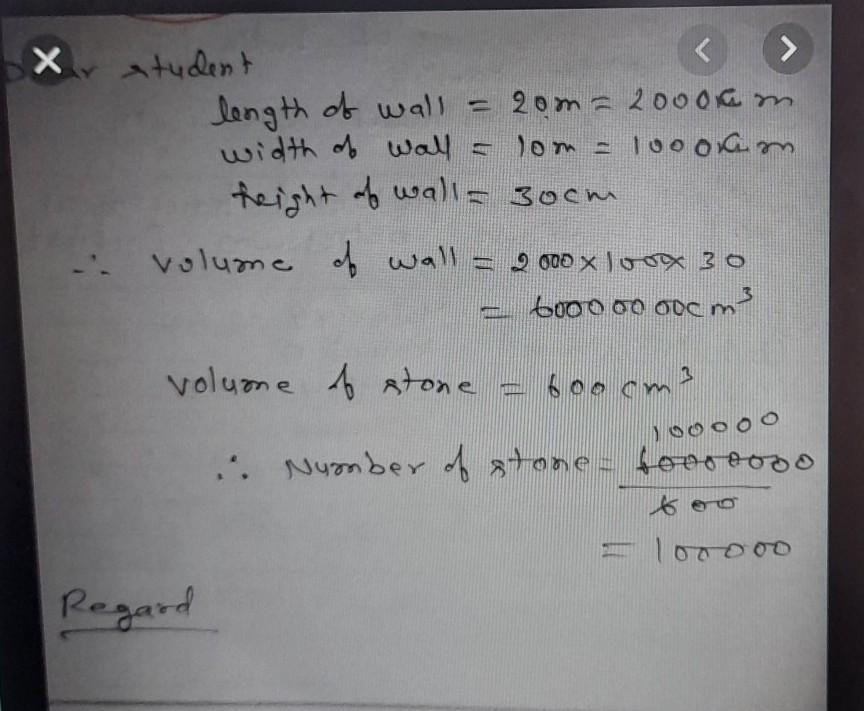 student
length of wall = 20m = 2000cm
width of wall = 10m = 1000cm
height of wall = 30cm
∴ volume of wall = 2000×1000×30
= 60000000cm³
volume of stone = 600cm³
100000
∴ Number of stone = 60000000
600
= 100000
Regard